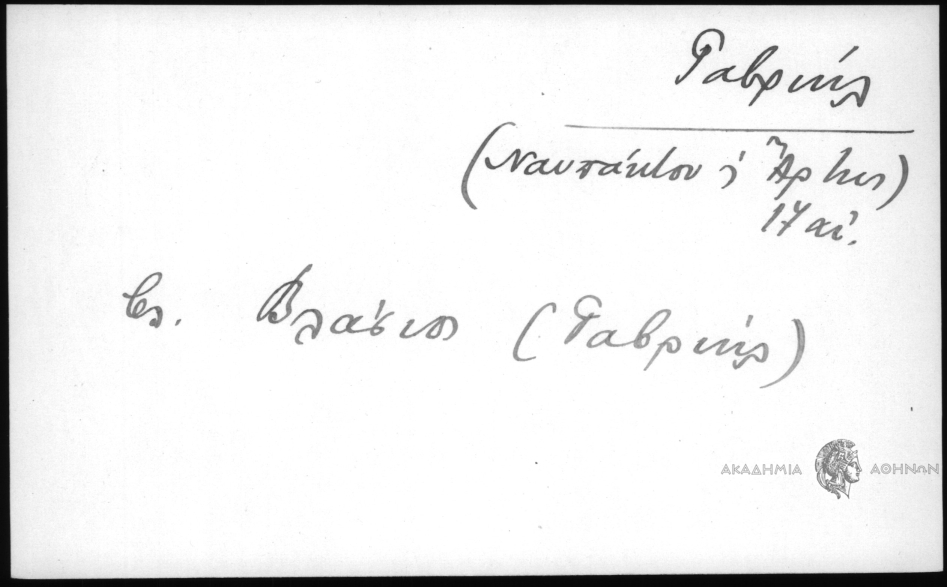 Γαβριήλ
(Ναυπάκτου ϗ Ἄρτης)
17 αἰ.
βλ. Βλάσιος (Γαβριήλ)
ΑΚΑΔΗΜΙΑ ΑΘΗΝΩΝ